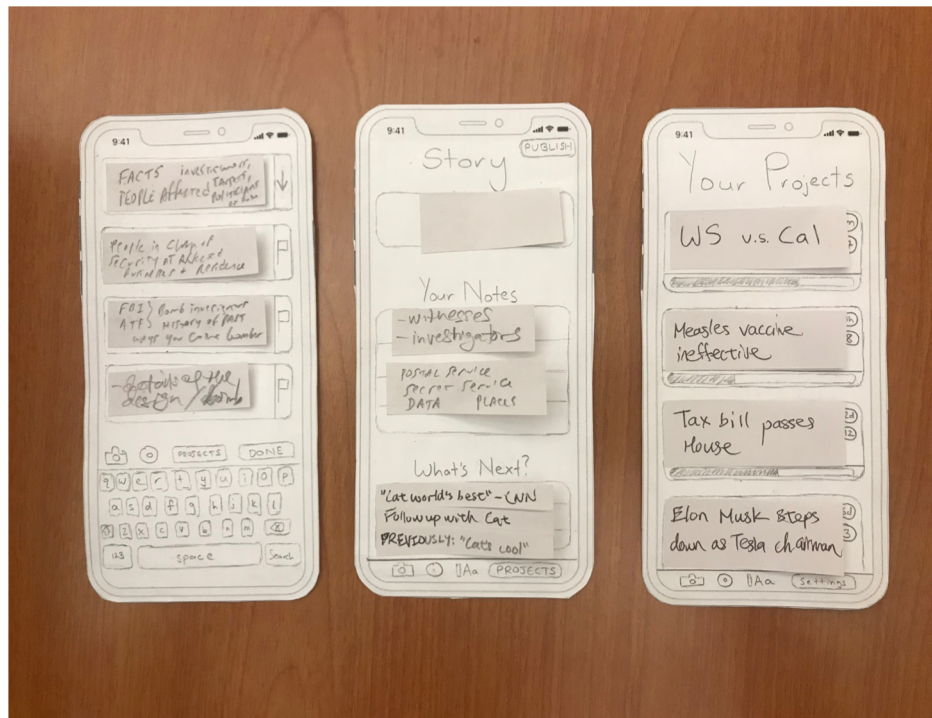 9:41
FACTS investigators,
PEOPLE Affected Targets,
Politicians
People in Charge of
Security at
+ Residence
FBI } Bomb
ATF } History of past
ways you
- Details of the
design / bomb
PROJECTS DONE
q w e r t y u i o p
a s d f g h j k l
z x c v b n m
123 space Search
9:41
PUBLISH
Story
Your Notes
- witnesses
- investigators
POSTAL SERVICE
Secret Service
DATA PLACES
What's Next?
"Cat world's best" - CNN
Follow up with Cat
PREVIOUSLY: "Cat's cool"
Aa PROJECTS
9:41
Your Projects
WS v.s. Cal
Measles vaccine
ineffective
Tax bill passes
House
Elon Musk steps
down as Tesla chairman
3
Aa Settings